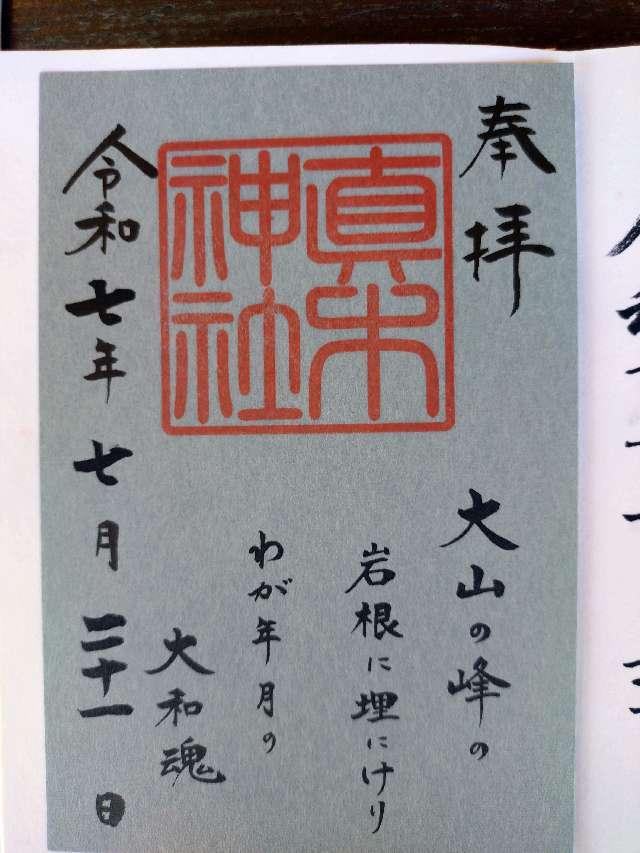 奉拝
真木神社
大山の峰の
岩根に埋にけり
わが年月の
大和魂
令和七年七月二十一日